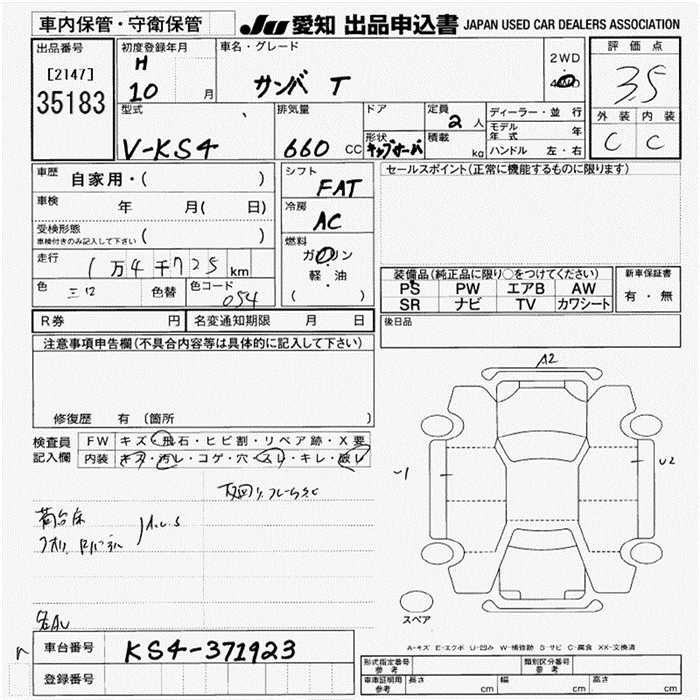 車内保管・守衛保管 JU 愛知 出品申込書 JAPAN USED CAR DEALERS ASSOCIATION
出品番号 初度登録年月 車名・グレード 2WD 評価点
[2147] H ・
35183 10 月 サンバ T 4WD 3.5
型式 排気量 ドア 定員 2 人 ディーラー・並行 外装 内装
V-KS4 660 CC 形状 積載 kg モデル年式 年 C C
ハンドル 左・右
車歴 自家用・( ) シフト FAT セールスポイント(正常に機能するものに限ります)
車検 年 月( 日) 冷房 AC
受検形態 ( )
車検付きのみ記入して下さい
燃料 ガソリン
走行 1万4千725 km ・ 装備品(純正品に限り○をつけてください) 新車保証書
軽油 PS PW エアB AW 有・無
色 色替 色コード 054 ( ) SR ナビ TV カワシート
R券 円 名変通知期限 月 日 後日品
注意事項申告欄(不具合内容等は具体的に記入して下さい)
修復歴 有 (箇所 )
A2
検査員 FW キズ・飛石・ヒビ割・リペア跡・X要
記入欄 内装 キズ・汚レ・コゲ・穴・スレ・キレ・
U2
荷台床
スペア
A-キズ E-エクボ U-凹み W-補修跡 S-サビ C-腐食 XX-交換済
車台番号 KS4-371923
登録番号
形式指定番号 参考 類別区分番号 参考
車庫証明用 参考 長さ cm 幅 cm 高さ cm